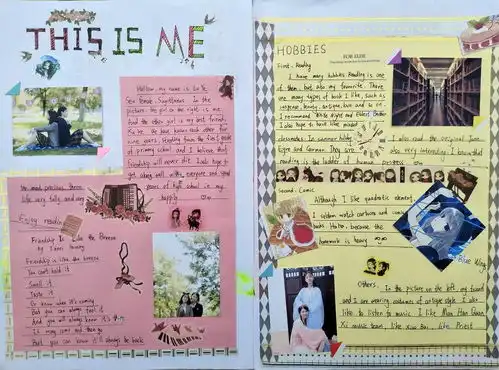 THIS IS ME
Hellow, my name is Lu Ye
Sex Female, Sagittarius. In the
picture, the girl on the right is me.
And the other girl is my best friend,
We have known each other for
nine years. Starting from the first grade
of primary school and I believe that
friendship will never die. I also hope to
get along well with everyone and spend
years of high school in my
happily
The most precious three
like very fully and very
Enjoy reading
Friendship Is Like the Breeze
by
Friendship is like the breeze
You can't hold it
Smell it
Taste it
Or know when it's coming
But you can always feel it
And you will always know it's
It may come and then go
But you can know it'll always be back
HOBBIES
FOR ELISE
First: Reading
I have many hobbies. Reading is one
of them, but also my favorite. There
are many types of book I like, such as
suspense, beauty, antique, love and so on.
I recommend and Elders Brother
I also hope to have like minded
classmates In common hobby. I also read the original Jane
Eyre and German. They are also very interesting. I believe that
reading is the ladder of human progress
Second: Comic
Although I like quadratic element,
I seldom watch cartoons and comic
books. Haha, because the
homework is heavy
Blue Wings
Others: In the picture on the left, my friend
and I are wearing costumes of antique style. I also
like to listen to music. I like Man Han Quan
Xi music team, like Xiao Bai, like Priest